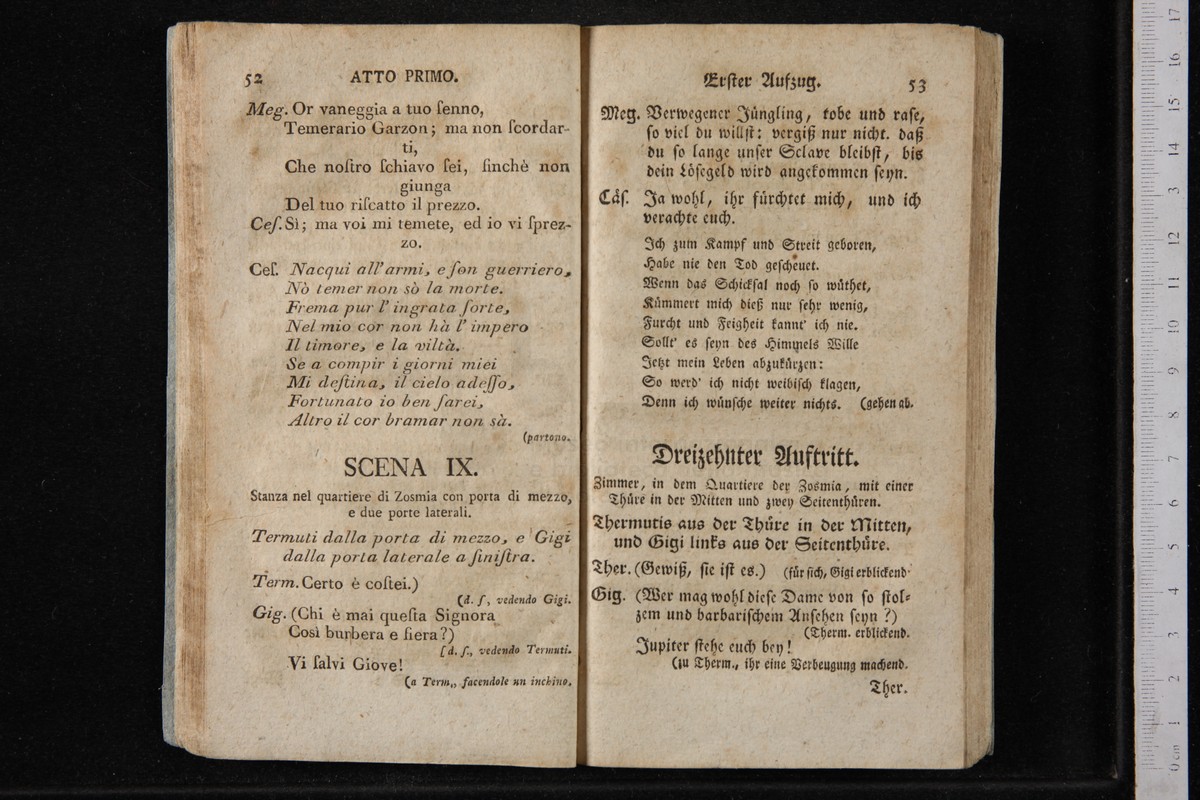 52 ATTO PRIMO.
Meg. Or vaneggia a tuo ſenno,
Temerario Garzon; ma non ſcordar-
ti,
Che noſtro ſchiavo ſei, ſinchè non
giunga
Del tuo riſcatto il prezzo.
Ceſ. Sì; ma voi mi temete, ed io vi ſprez-
zo.
Ceſ. Nacqui all' armi, e ſon guerriero,
Nò temer non sò la morte.
Frema pur l' ingrata ſorte,
Nel mio cor non hà l' impero
Il timore, e la viltà.
Se a compir i giorni miei
Mi deſtina, il cielo adeſſo,
Fortunato io ben ſarei,
Altro il cor bramar non sà.
(partono.
SCENA IX.
Stanza nel quartiere di Zosmia con porta di mezzo,
e due porte laterali.
Termuti dalla porta di mezzo, e Gigi
dalla porta laterale a ſiniſtra.
Term. Certo è coſtei.)
(d. ſ, vedendo Gigi.
Gig. (Chi è mai queſta Signora
Così burbera e fiera?)
[d. ſ., vedendo Termuti.
Vi ſalvi Giove!
(a Term,, facendole un inchino.
Erſter Aufzug. 53
Meg. Verwegener Jüngling, tobe und raſe,
ſo viel du willſt: vergiß nur nicht. daß
du ſo lange unſer Sclave bleibſt, bis
dein Löſegeld wird angekommen ſeyn.
Cäſ. Ja wohl, ihr fürchtet mich, und ich
verachte euch.
Ich zum Kampf und Streit geboren,
Habe nie den Tod geſcheuet.
Wenn das Schickſal noch ſo wüthet,
Kümmert mich dieß nur ſehr wenig,
Furcht und Feigheit kannt' ich nie.
Sollt' es ſeyn des Himmels Wille
Jetzt mein Leben abzukürzen:
So werd' ich nicht weibiſch klagen,
Denn ich wünſche weiter nichts. (gehen ab.
Dreizehnter Auftritt.
Zimmer, in dem Quartiere der Zosmia, mit einer
Thüre in der Mitten und zwey Seitenthüren.
Thermutis aus der Thüre in der Mitten,
und Gigi links aus der Seitenthüre.
Ther. (Gewiß, ſie iſt es.) (für ſich, Gigi erblickend.
Gig. (Wer mag wohl dieſe Dame von ſo ſtol-
zem und barbariſchem Anſehen ſeyn?)
(Therm. erblickend.
Jupiter ſtehe euch bey!
(zu Therm., ihr eine Verbeugung machend.
Ther.